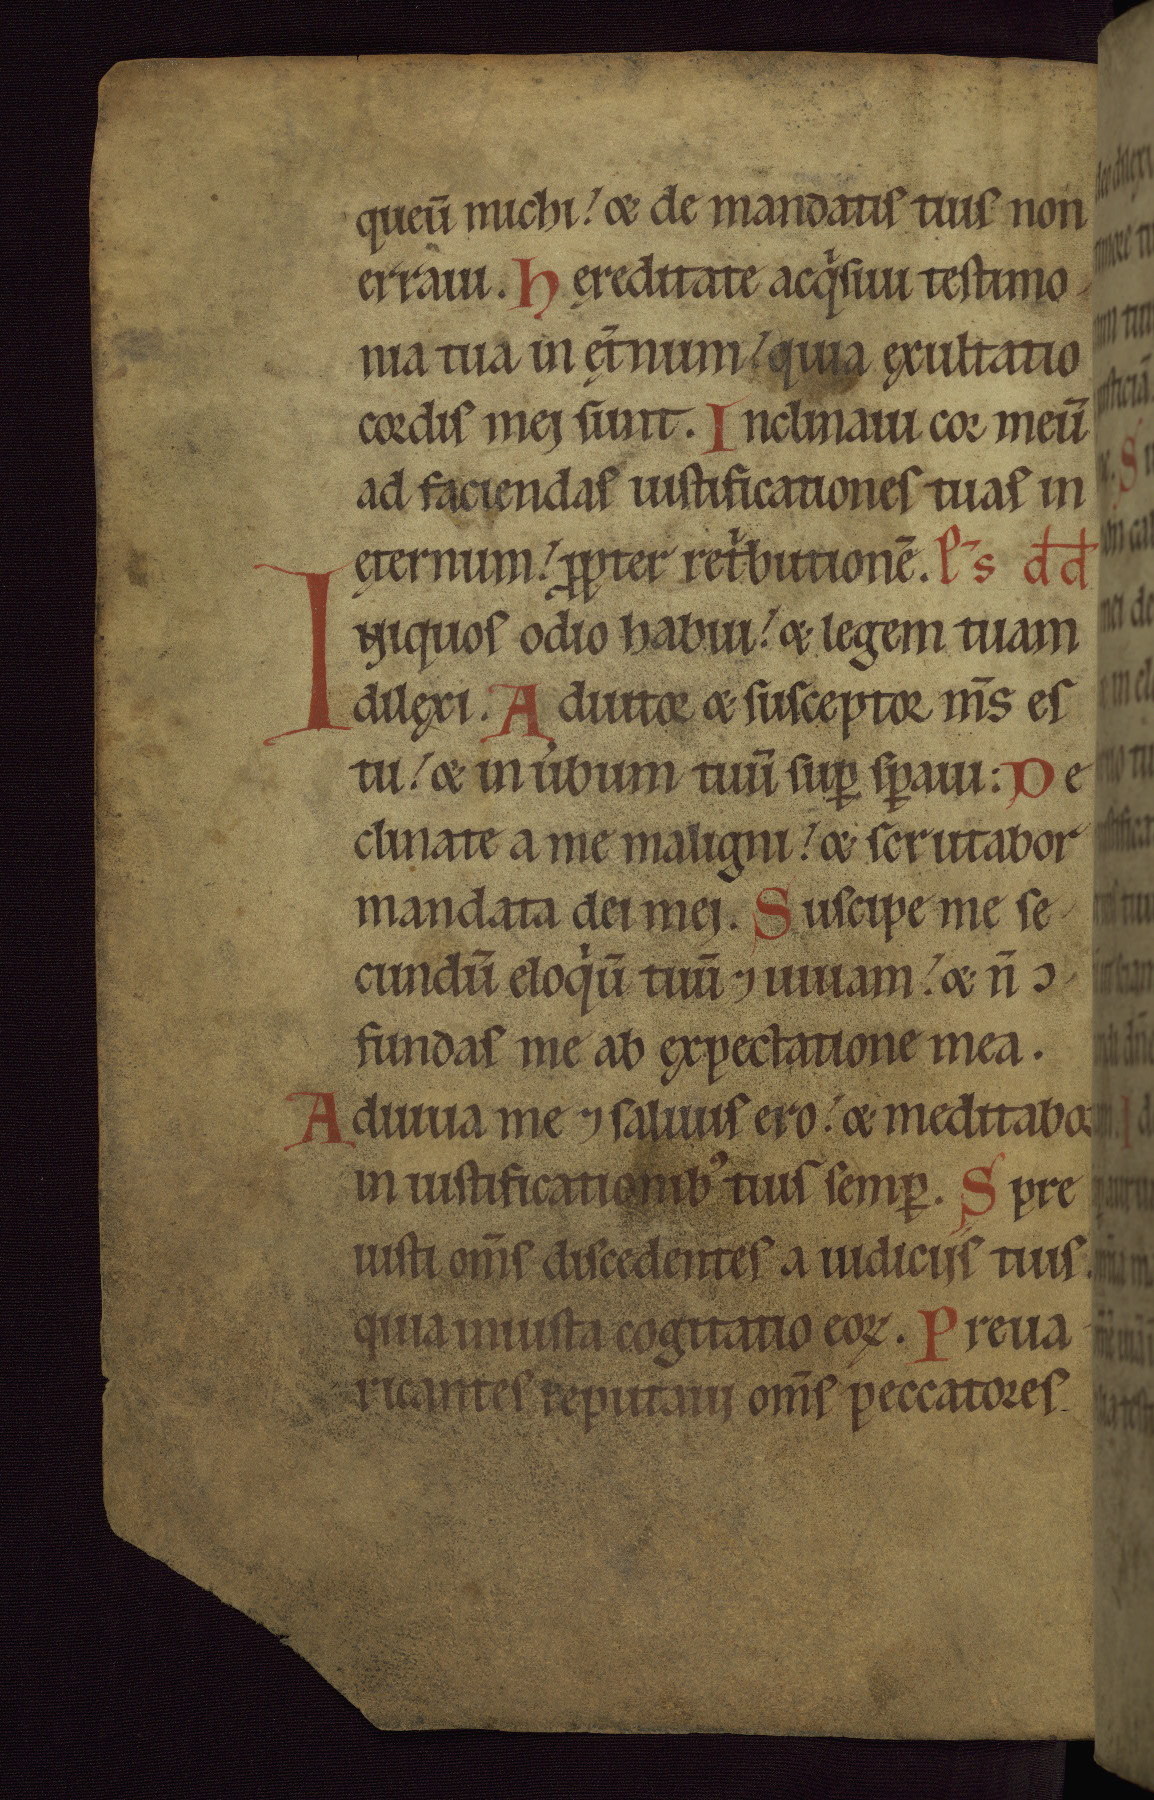 queū michi! & de mandatis tuis non
erraui. Hereditate acqͥsiui testimo-
nia tua in et̄num! quia exultatio
cordis mei sunt. Inclinaui cor meū
ad faciendas iustificationes tuas in
eternum! ꝓpter retͥbutionē. Ps̄ dd
Iniquos odio habui! & legem tuam
dilexi. Adiutor & susceptor m̄s es
tu! & in u̾bum tuū suꝑ sꝑaui: De
clinate a me maligni! & scrutabor
mandata dei mei. Suscipe me se-
cundū eloqͥū tuū ⁊ uiuam! & n̄ ↄ-
fundas me ab expectatione mea.
Adiuua me ⁊ saluus ero! & meditabor
in iustificationibꝰ tuis semꝑ. Spre
uisti om̄s discedentes a iudiciis tuis.
quia iniusta cogitatio eoꝝ. Preua-
ricantes reputaui om̄s peccatores